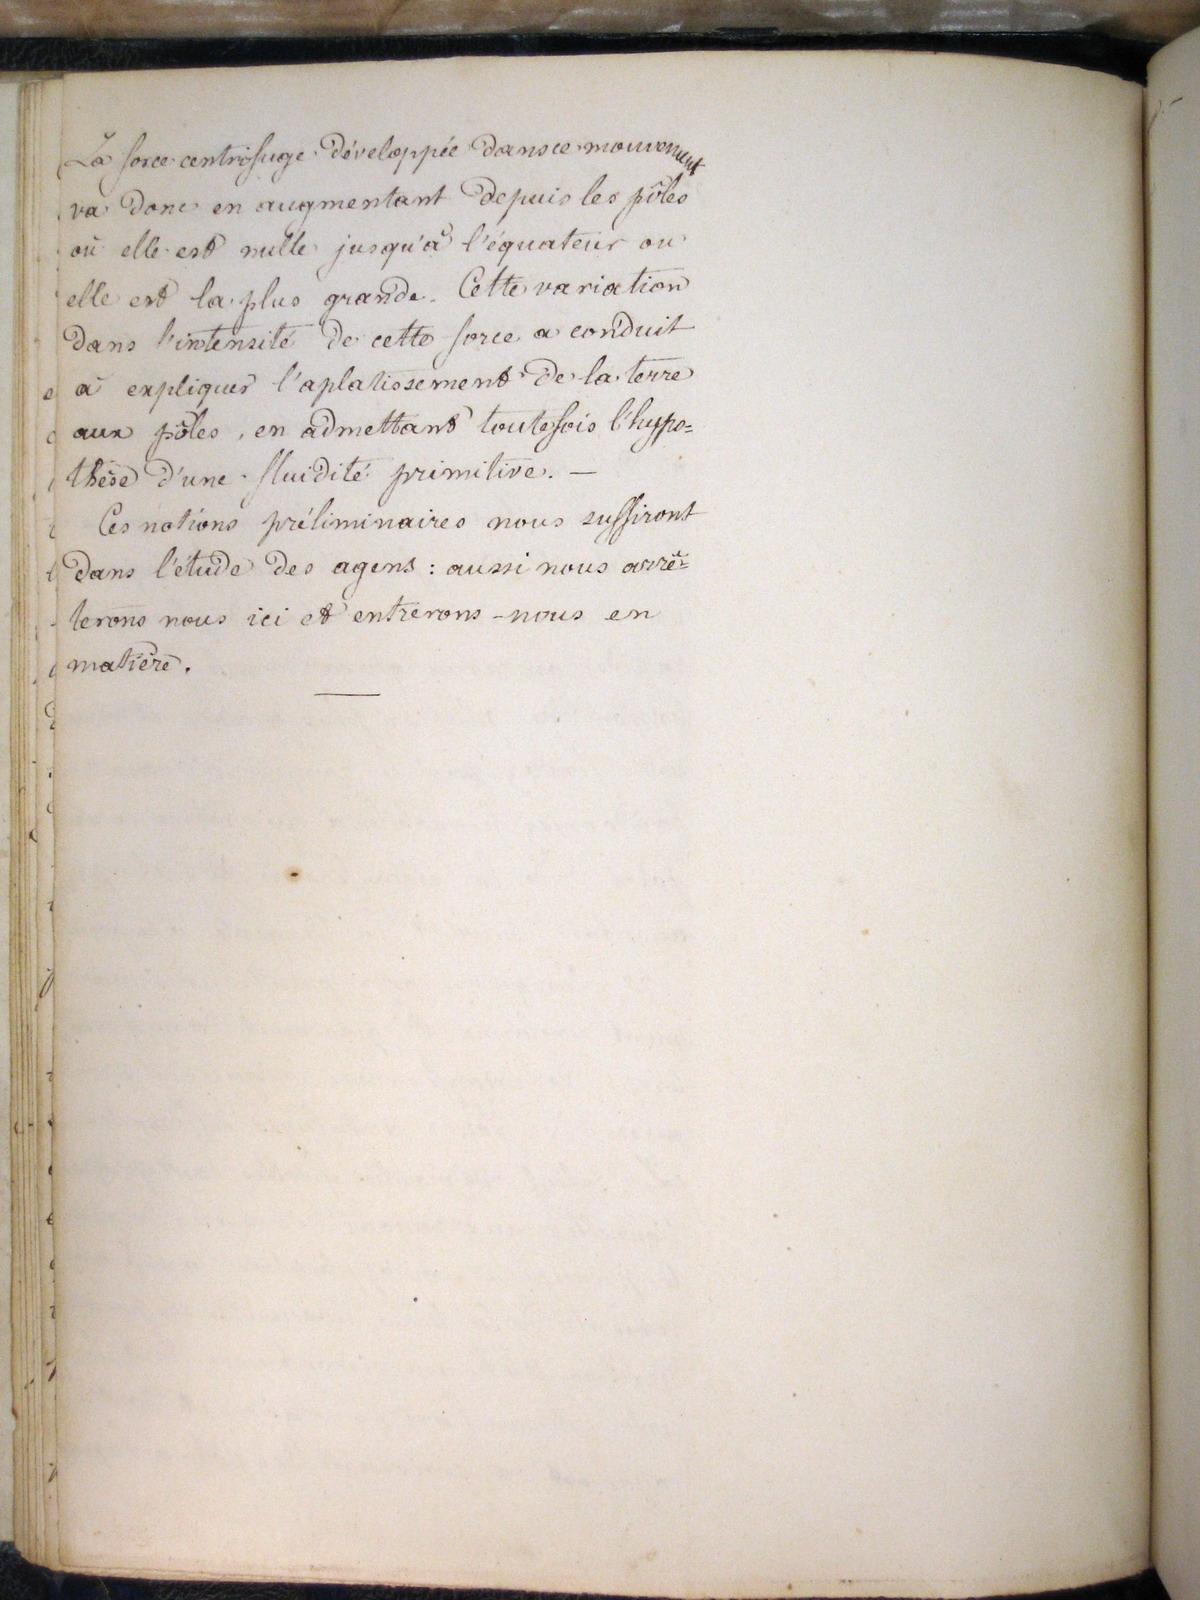 La force centrifuge développée dans ce mouvement
va donc en augmentant depuis les pôles
où elle est nulle jusqu'à l'équateur ou
elle est la plus grande. Cette variation
dans l'intensité de cette force a conduit
à expliquer l'aplatissement de la terre
aux pôles, en admettant toutefois l'hypo=
thèse d'une fluidité primitive. —
Ces notions préliminaires nous suffiront
dans l'étude des agens : aussi nous arrê=
terons nous ici et entrerons-nous en
matière.